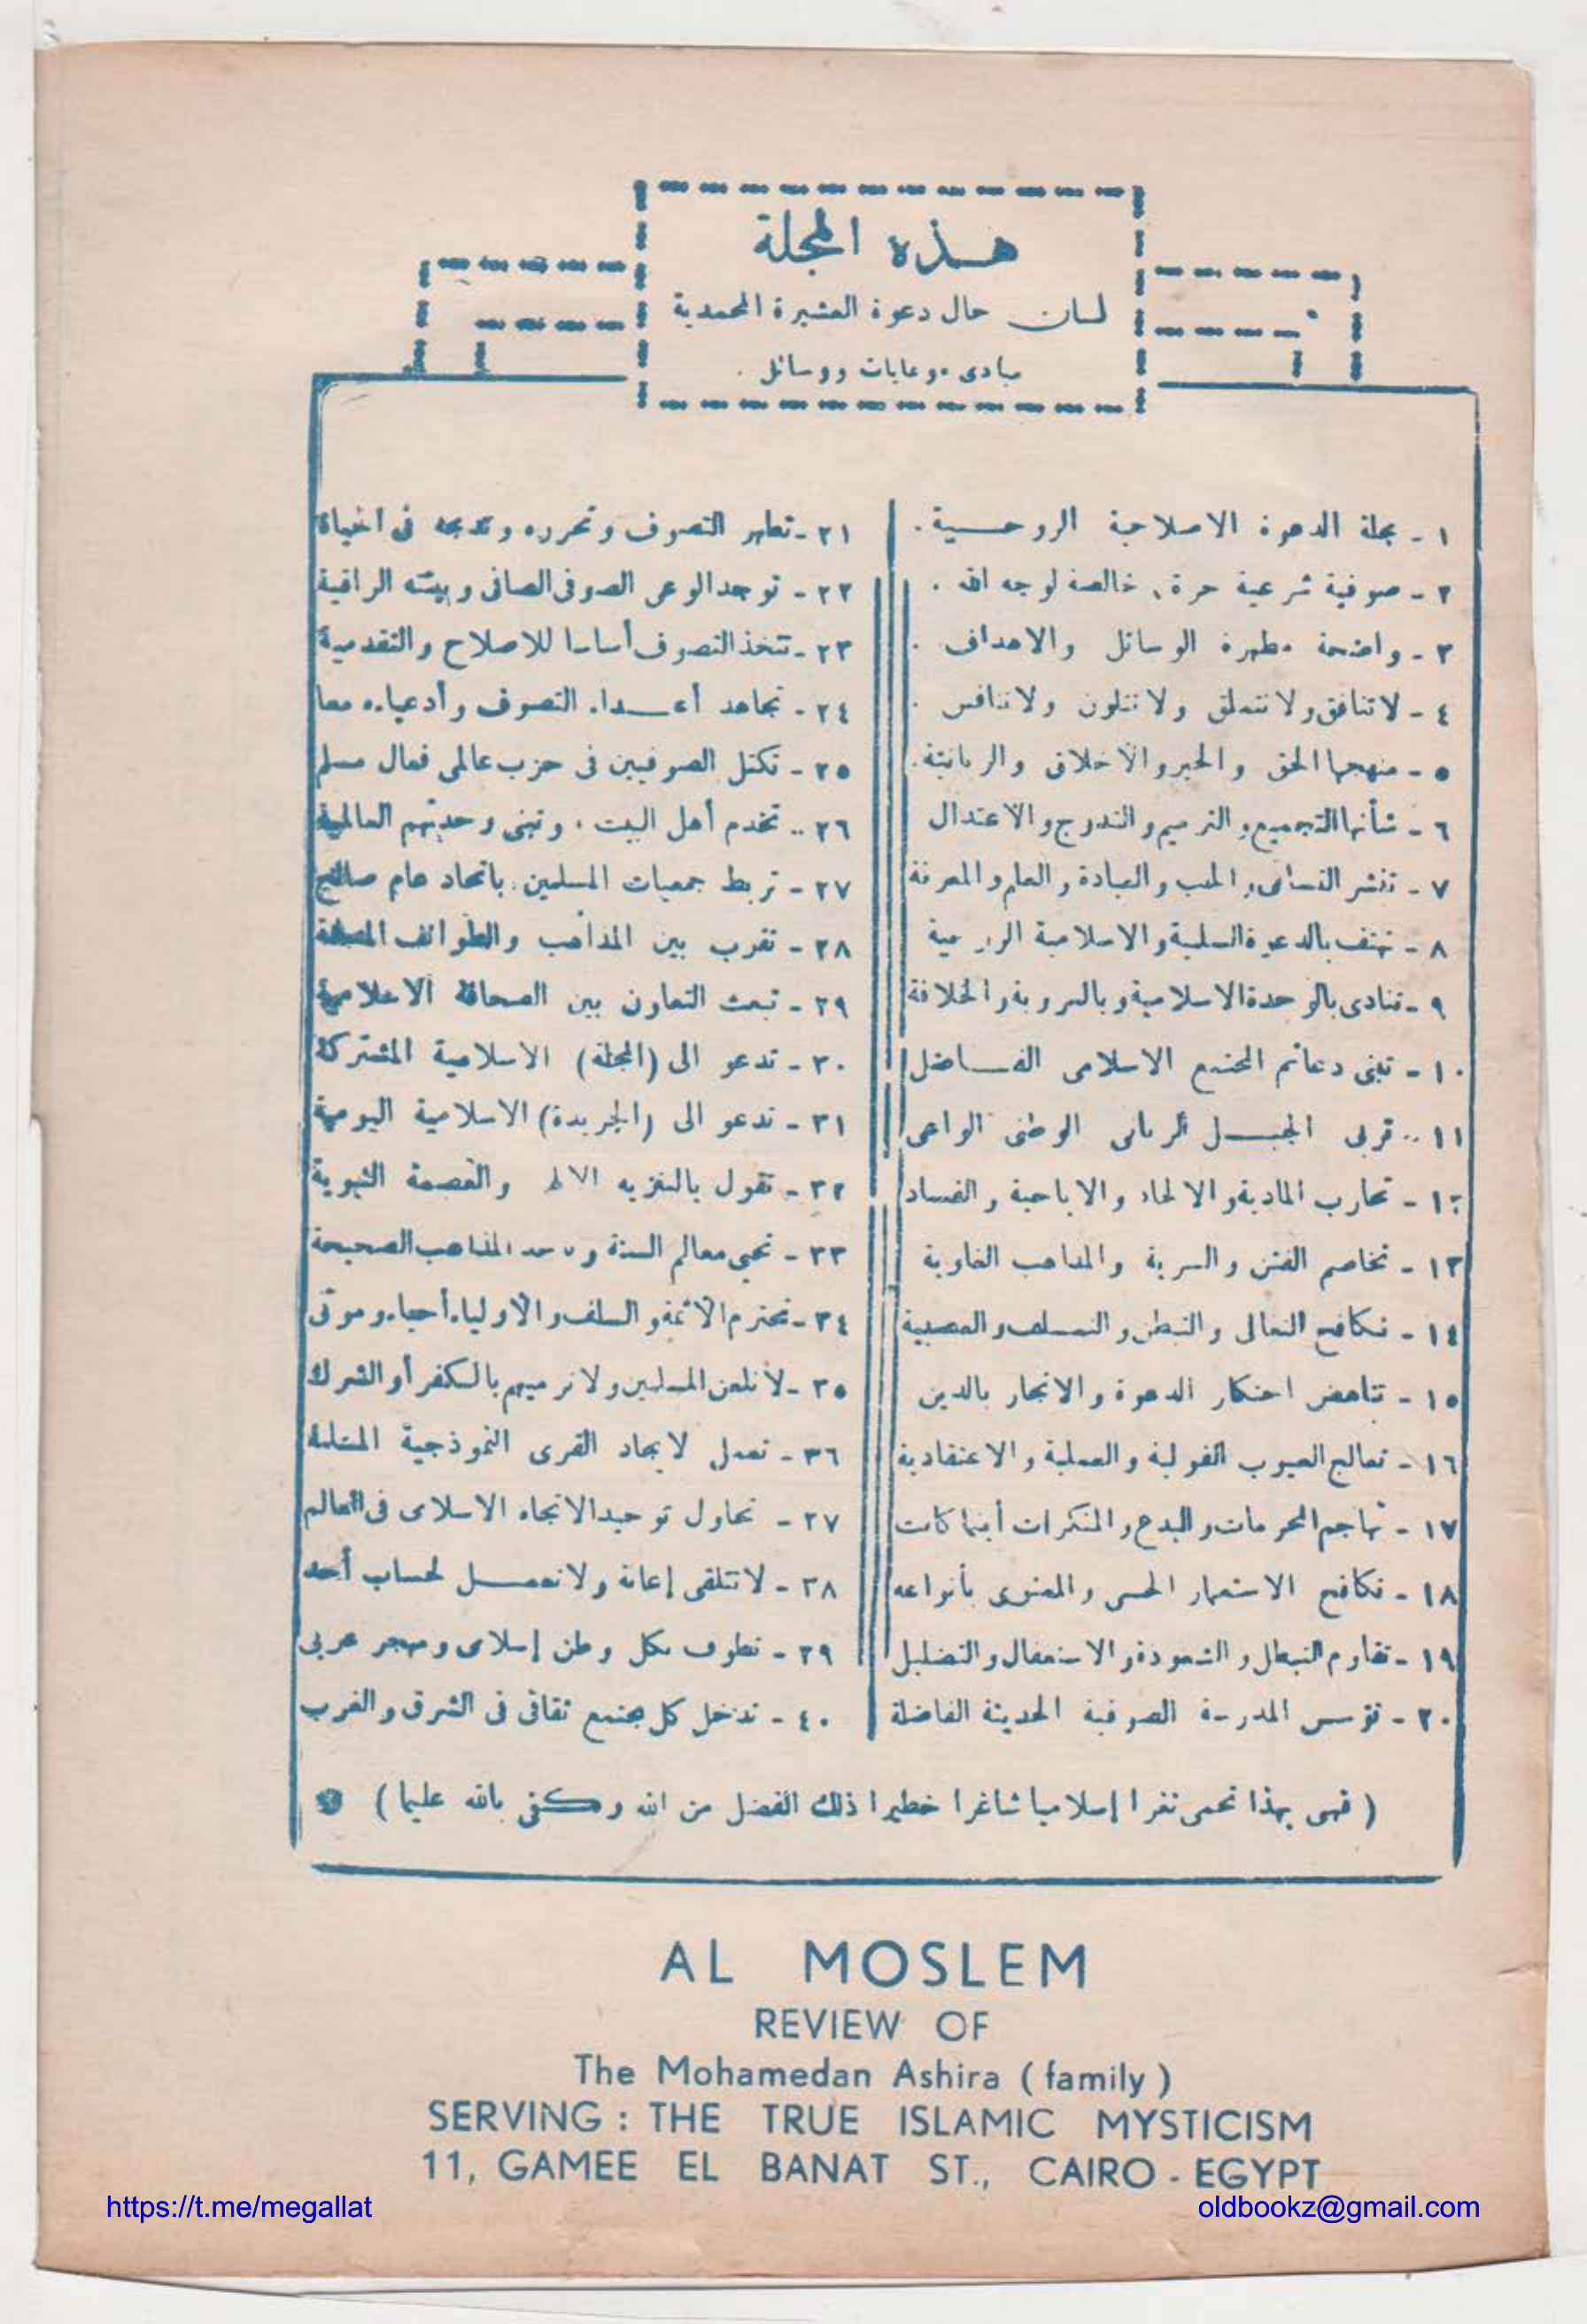 هذه المجلة
لسان حال دعوة العشيرة المحمدية
مبادىء وغايات ووسائل .
١ - مجلة الدعوة الاصلاحية الروحية .
٢ - صوفية شرعية حرة ، خالصة لوجه الله .
٣ - واضحة مطهرة الوسائل والاهداف .
٤ - لا تنافق ولا تتملق ولا تتلون ولا تنافس .
٥ - منهجها الحق والخير والأخلاق والربانية .
٦ - شأنها التجميع والترميم والتدرج والاعتدال
٧ - تنشر التسامى والحب والعبادة والعلم والمعرفة
٨ - تهتف بالدعوة السلمية والاسلامية الروحية
٩ - تنادى بالوحدة الاسلامية وبالعروبة والخلافة
١٠ - تبنى دعائم المجتمع الاسلامى الفاضل
١١ - تربى الجيل الربانى الوطنى الواعى
١٢ - تحارب المادية والالحاد والاباحية والفساد
١٣ - تخاصم الفتن والسرية والمذاهب الغاوية
١٤ - تكافح التعالى والتبطن والتسلف والعصبية
١٥ - تناهض احتكار الدعوة والاتجار بالدين
١٦ - تعالج العيوب القولية والعملية والاعتقادية
١٧ - تهاجم المحرمات والبدع والمنكرات أينما كانت
١٨ - تكافح الاستعمار الحسى والمعنوى بأنواعه
١٩ - تقاوم التبطل والشعوذة والاستغفال والتضليل
٢٠ - تؤسس المدرسة الصوفية الحديثة الفاضلة
٢١ - تطهر التصوف وتحرره وتدمجه فى الحياة
٢٢ - توجد الوعى الصوفى الصافى وبيئته الراقية
٢٣ - تتخذ التصوف أساسا للاصلاح والتقدمية
٢٤ - تجاهد أعداء التصوف وأدعياءه معا
٢٥ - تكتل الصوفيين فى حزب عالمى فعال مسلم
٢٦ - تخدم أهل البيت ، وتبنى وحدتهم العالمية
٢٧ - تربط جمعيات المسلمين باتحاد عام صالح
٢٨ - تقرب بين المذاهب والطوائف
٢٩ - تبعث التعاون بين الصحافة الاعلامية
٣٠ - تدعو الى (المجلة) الاسلامية المشتركة
٣١ - تدعو الى (الجريدة) الاسلامية اليومية
٣٢ - تقول بالتنزيه والعصمة النبوية
٣٣ - تحيى معالم السنة المذاهب الصحيحة
٣٤ - تحترم الأئمة والسلف والأولياء أحياء وموتى
٣٥ - لا تلعن المسلمين ولا ترميهم بالكفر أو الشرك
٣٦ - تعمل لايجاد القرى النموذجية
٣٧ - تحاول توحيد الاتجاه الاسلامى فى العالم
٣٨ - لا تتلقى إعانة ولا تعمل لحساب أحد
٣٩ - تطوف بكل وطن إسلامى ومهجر عربى
٤٠ - تدخل كل مجتمع ثقافى فى الشرق والغرب
( فهى بهذا تحمى ثغرا إسلاميا شاغرا خطيرا ذلك الفضل من الله وكفى بالله عليما )
AL MOSLEM
REVIEW OF
The Mohamedan Ashira ( family )
SERVING : THE TRUE ISLAMIC MYSTICISM
11, GAMEE EL BANAT ST., CAIRO - EGYPT
https://t.me/megallat oldbookz@gmail.com